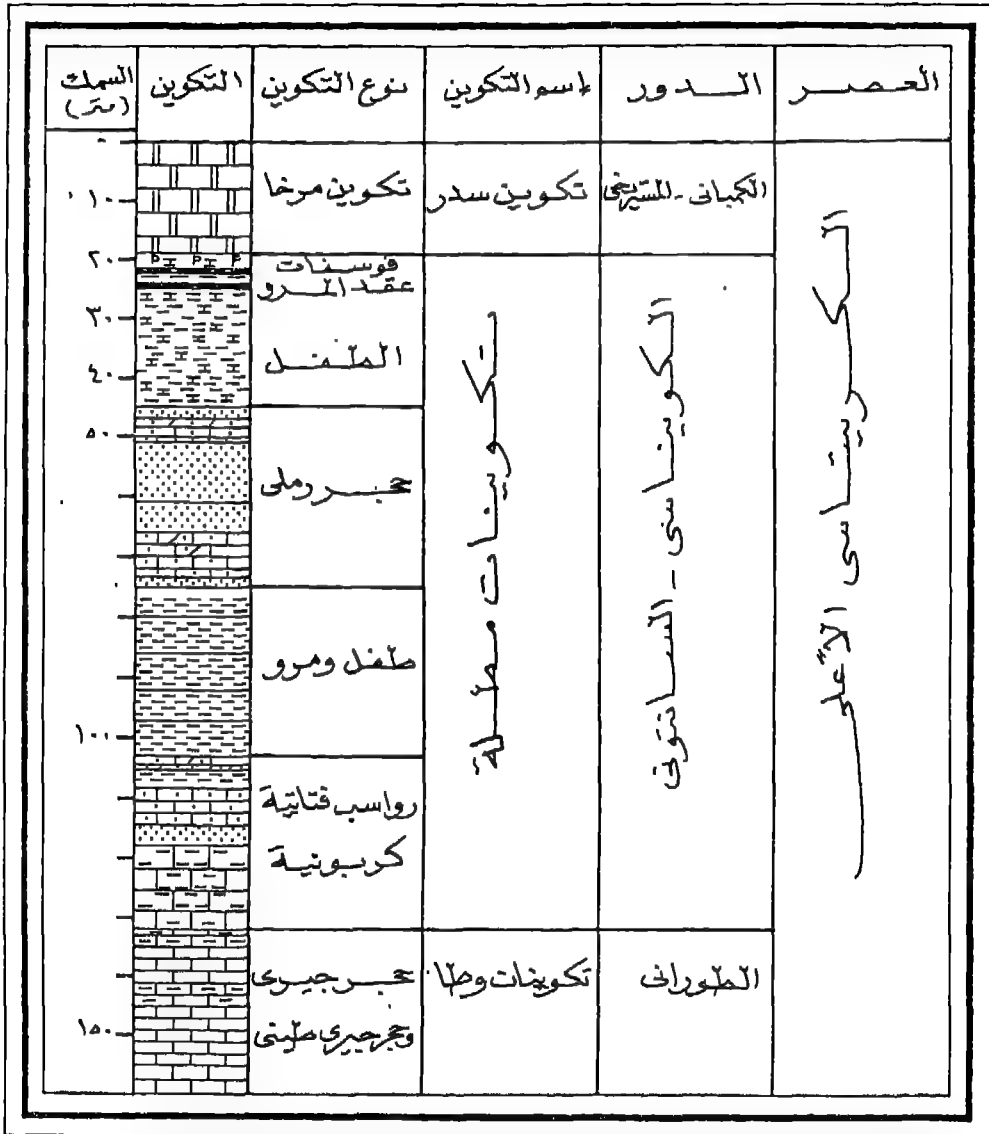 العصر
الدور
إسم التكوين
نوع التكوين
التكوين
السمك
(متر)
الكريتاسى الأعلى
الكمبانى - المستريخى
تكوين سدر
تكوين مرخا
الكونيناسى - السانتونى
تكوينات مطلة
فوسفات
عقد المرو
الطفل
حجر رملى
طفل ومرو
رواسب فتاتية
كربونية
الطورانى
تكوينات وطا
حجر جيرى
وحجر جيرى طينى
٠
١٠
٢٠
٣٠
٤٠
٥٠
١٠٠
١٥٠
P P P